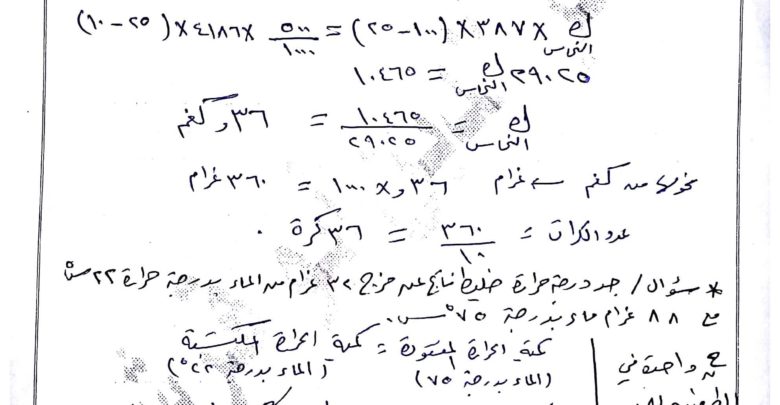 ك النحاس × ٣٨٧ × (١٠٠ - ٢٥) = ٥٠٠/١٠٠٠ × ٤١٨٦ × (٢٥ - ١٠)
٢٩٠٢٥ ك النحاس = ١٠٤٦٥
ك النحاس = ١٠٤٦٥/٢٩٠٢٥ = ٣٦و كغم
نحولها من كغم ← غرام ٣٦و × ١٠٠٠ = ٣٦٠ غرام
عدد الكرات = ٣٦٠/١٠ = ٣٦ كرة .
* سؤال / جد درجة حرارة خليط ناتج عن مزج ٣٢ غرام من الماء بدرجة حرارة ٢٢ °س
مع ٨٨ غرام ماء بدرجة ٧٥ °س.
كمية الحرارة المفقودة = كمية الحرارة المكتسبة
(الماء بدرجة ٧٥) (الماء بدرجة ٢٢°)
واحدة في